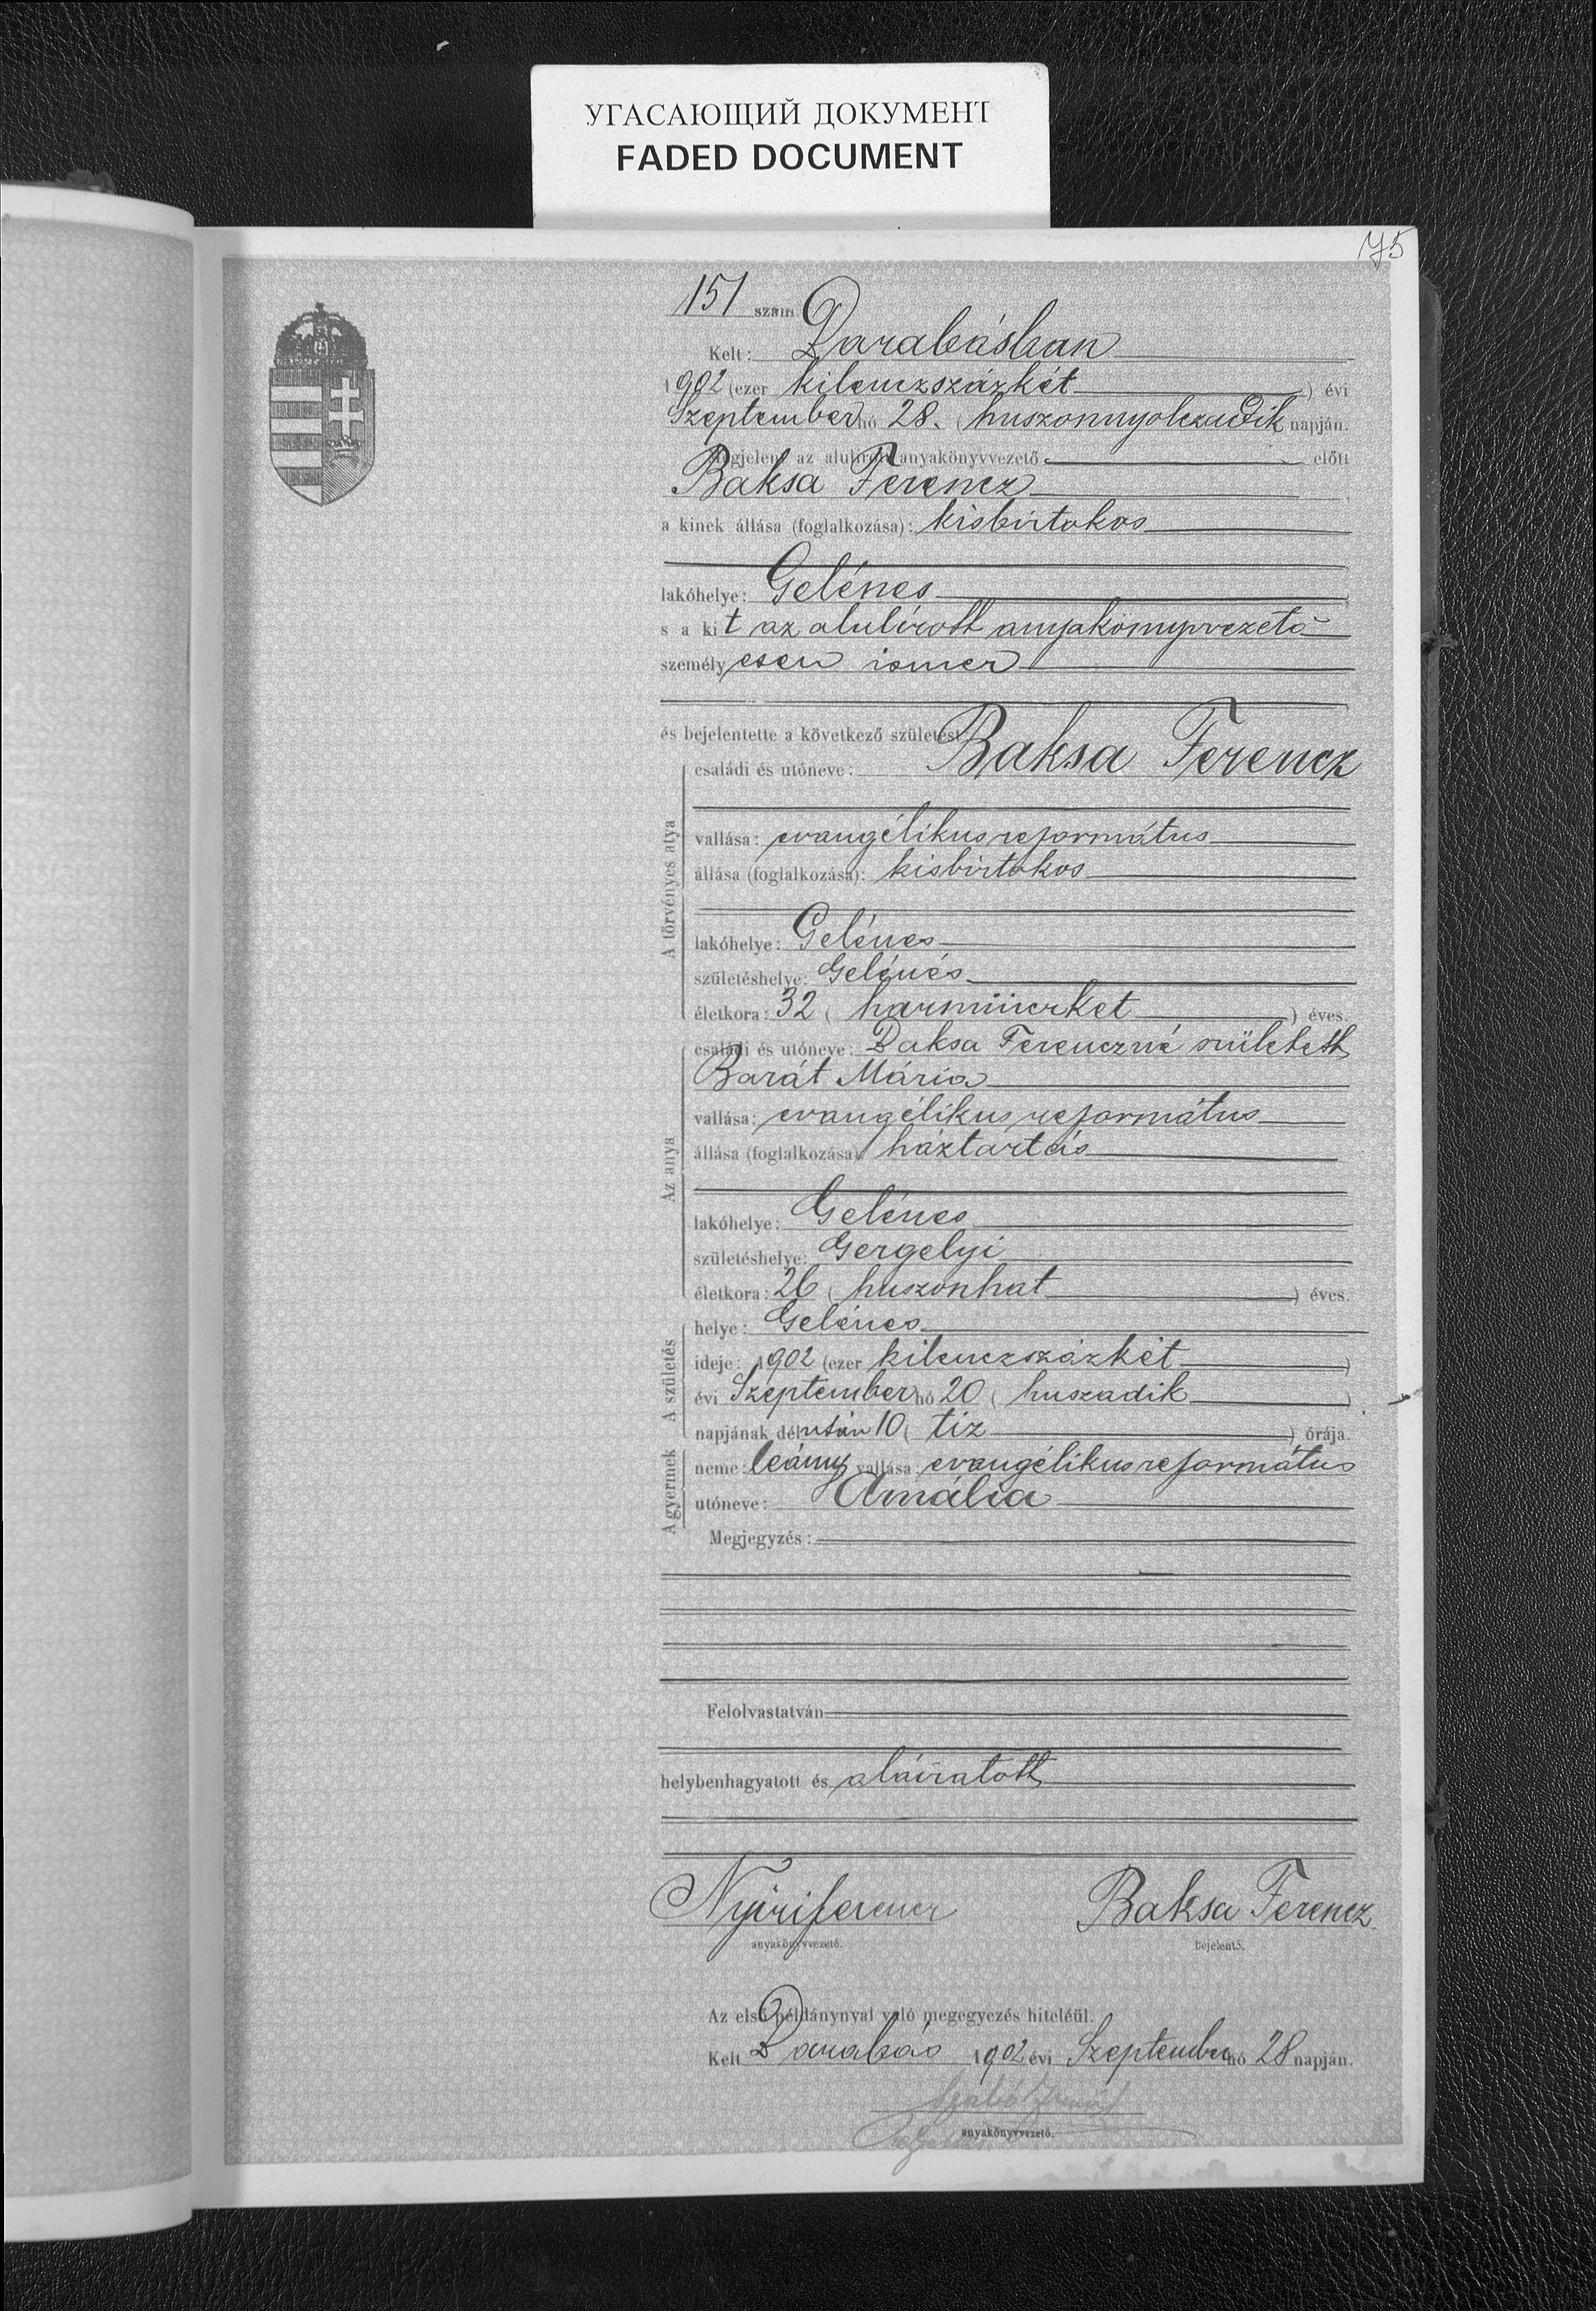 УГАСАЮЩИЙ ДОКУМЕНТ
FADED DOCUMENT
75
151 szám.
Kelt: Darabásban
1902 (ezer kilenczszázkét) évi
Szeptember hó 28. (huszonnyolczadik napján.
Megjelent az alulírott anyakönyvvezető előtt
Baksa Ferencz
a kinek állása (foglalkozása): kisbirtokos
lakóhelye: Gelénes
s a kit az alulírott anyakönyvvezető
személyesen ismer
és bejelentette a következő születést
A törvényes atya
családi és utóneve: Baksa Ferencz
vallása: evangélikus református
állása (foglalkozása): kisbirtokos
lakóhelye: Gelénes
születéshelye: Gelénés
életkora: 32 (harminczket) éves.
Az anya
családi és utóneve: Baksa Ferenczné született
Barát Mária
vallása: evangélikus református
állása (foglalkozása): háztartás
lakóhelye: Gelénes
születéshelye: Gergelyi
életkora: 26 (huszonhat) éves.
A születés
helye: Gelénes
ideje: 1902 (ezer kilenczszázkét)
évi Szeptember hó 20 (huszadik)
napjának délután 10 (tiz) órája.
A gyermek
neme: leány vallása: evangélikus református
utóneve: Amália
Megjegyzés:
Felolvastatván
helybenhagyatott és aláíratott
Nyiri ferencz Baksa Ferencz
anyakönyvvezető. bejelentő.
Az első példánynyal való megegyezés hiteléül.
Kelt Darabás 1902 évi Szeptember hó 28 napján.
Szabó
anyakönyvvezető.